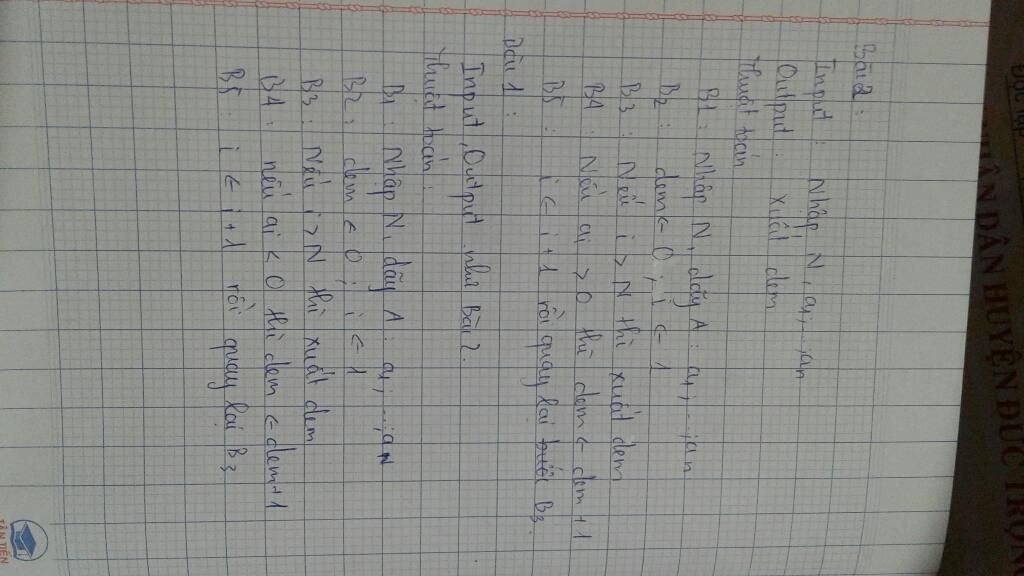 Bài 2:
Input: Nhập N, a1,...,an
Output: xuất dem
Thuật toán
B1: Nhập N, dãy A: a1,...,an
B2: dem ← 0; i ← 1
B3: Nếu i > N thì xuất dem
B4: Nếu ai > 0 thì dem ← dem + 1
B5: i ← i + 1 rồi quay lại B3.
Bài 1:
Input, Output như Bài 2.
Thuật toán:
B1: Nhập N, dãy A: a1,...,aN
B2: dem ← 0; i ← 1
B3: Nếu i > N thì xuất dem
B4: nếu ai < 0 thì dem ← dem + 1
B5: i ← i + 1 rồi quay lại B3
TÂN TIẾN
NHÂN DÂN HUYỆN ĐỨC TRỌNG